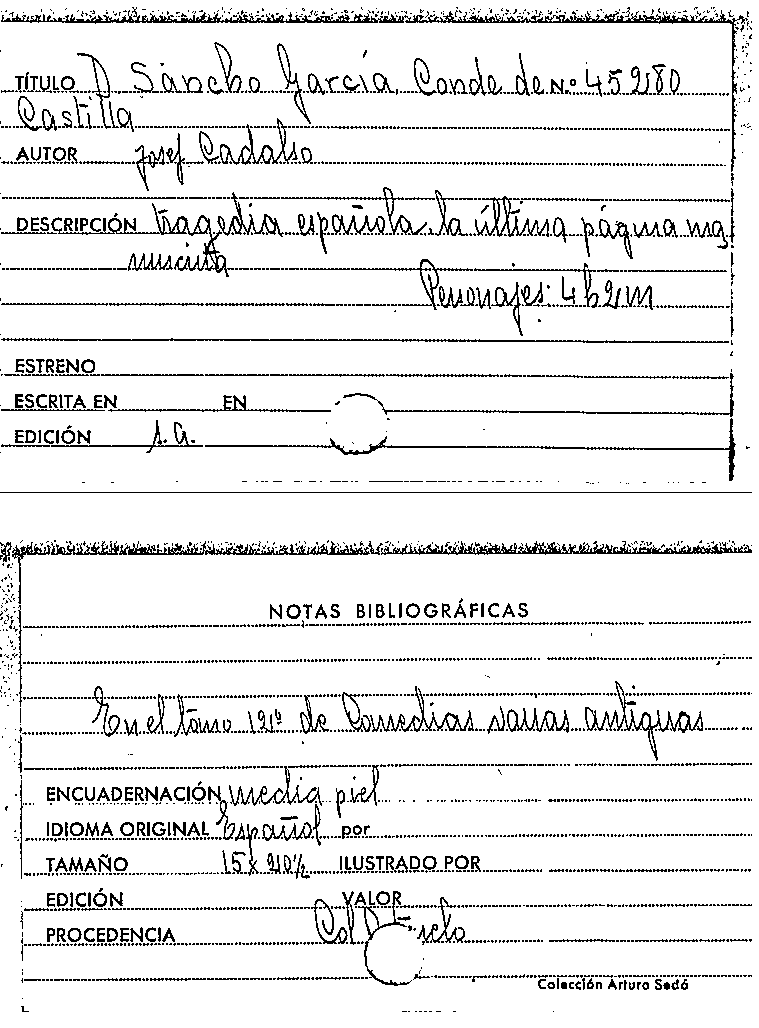 TÍTULO D Sancho García, Conde de N.º 45280
Castilla
AUTOR Josef Cadalso
DESCRIPCIÓN tragedia española, la última página ma
nuscrita
Personajes: 4 h 2 m
ESTRENO
ESCRITA EN EN
EDICIÓN s.a.
NOTAS BIBLIOGRÁFICAS
En el tomo de Comedias varias antiguas
ENCUADERNACIÓN media piel
IDIOMA ORIGINAL Español por
TAMAÑO 15 x 20½ ILUSTRADO POR
EDICIÓN VALOR
PROCEDENCIA Col
Colección Arturo Sedó